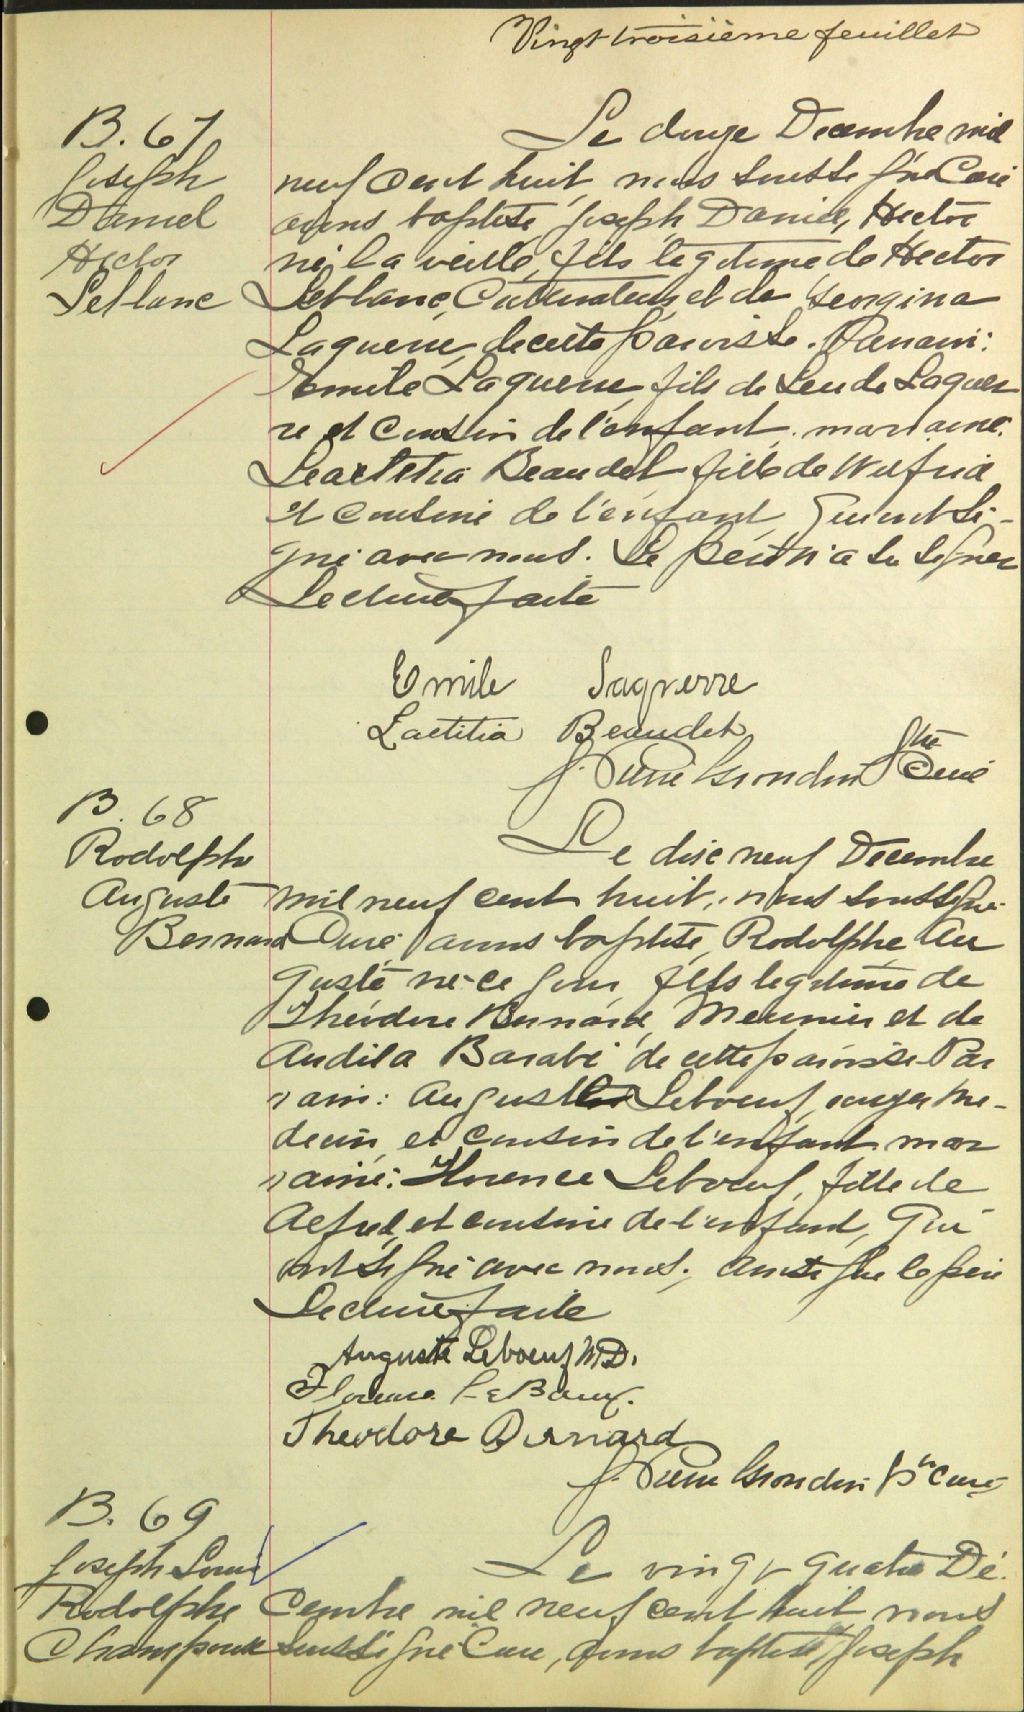 Vingt troisième feuillet
B. 67
Joseph
Daniel
Hector
Leblanc
Le douze Decembre mil
neuf cent huit, nous soussigné Curé
avons baptisé, Joseph Daniel, Hector
né la veille, fils legitime de Hector
Leblanc, Cultivateur et de Georgina
Laguerre, de cette paroisse. Parrain:
Emile Laguerre, fils de Leude Laguer
re et cousin de l'enfant, marraine.
Leaetitia Beaudet fille de Wilfrid
et cousine de l'enfant, qui ont si-
gné avec nous. Le père n'a su signer
Lecture faite
Emile Laguerre
Laetitia Beaudet
J. Pierre Grondin Ptre Curé
B. 68
Rodolphe
Auguste
Bernard
Le dix neuf Decembre
mil neuf cent huit, nous soussigné
Curé avons baptisé, Rodolphe Au
guste né ce jour, fils legitime de
Théodore Bernard, Meunier et de
Audila Barabé de cette paroisse Par
rain: Auguste Leboeuf, Me-
decin, et cousin de l'enfant, mar
raine: Florence Leboeuf, fille de
Alfred, et cousine de l'enfant, qui
ont signé avec nous, ainsi que le père
Lecture faite
Auguste Leboeuf M.D.
Florence LeBoeuf.
Theodore Bernard
J. Pierre Grondin Ptre Curé
B. 69
Joseph Louis
Rodolphe
Champoux
Le vingt quatre Dé
cembre mil neuf cent huit nous
soussigné Curé, avons baptisé, Joseph